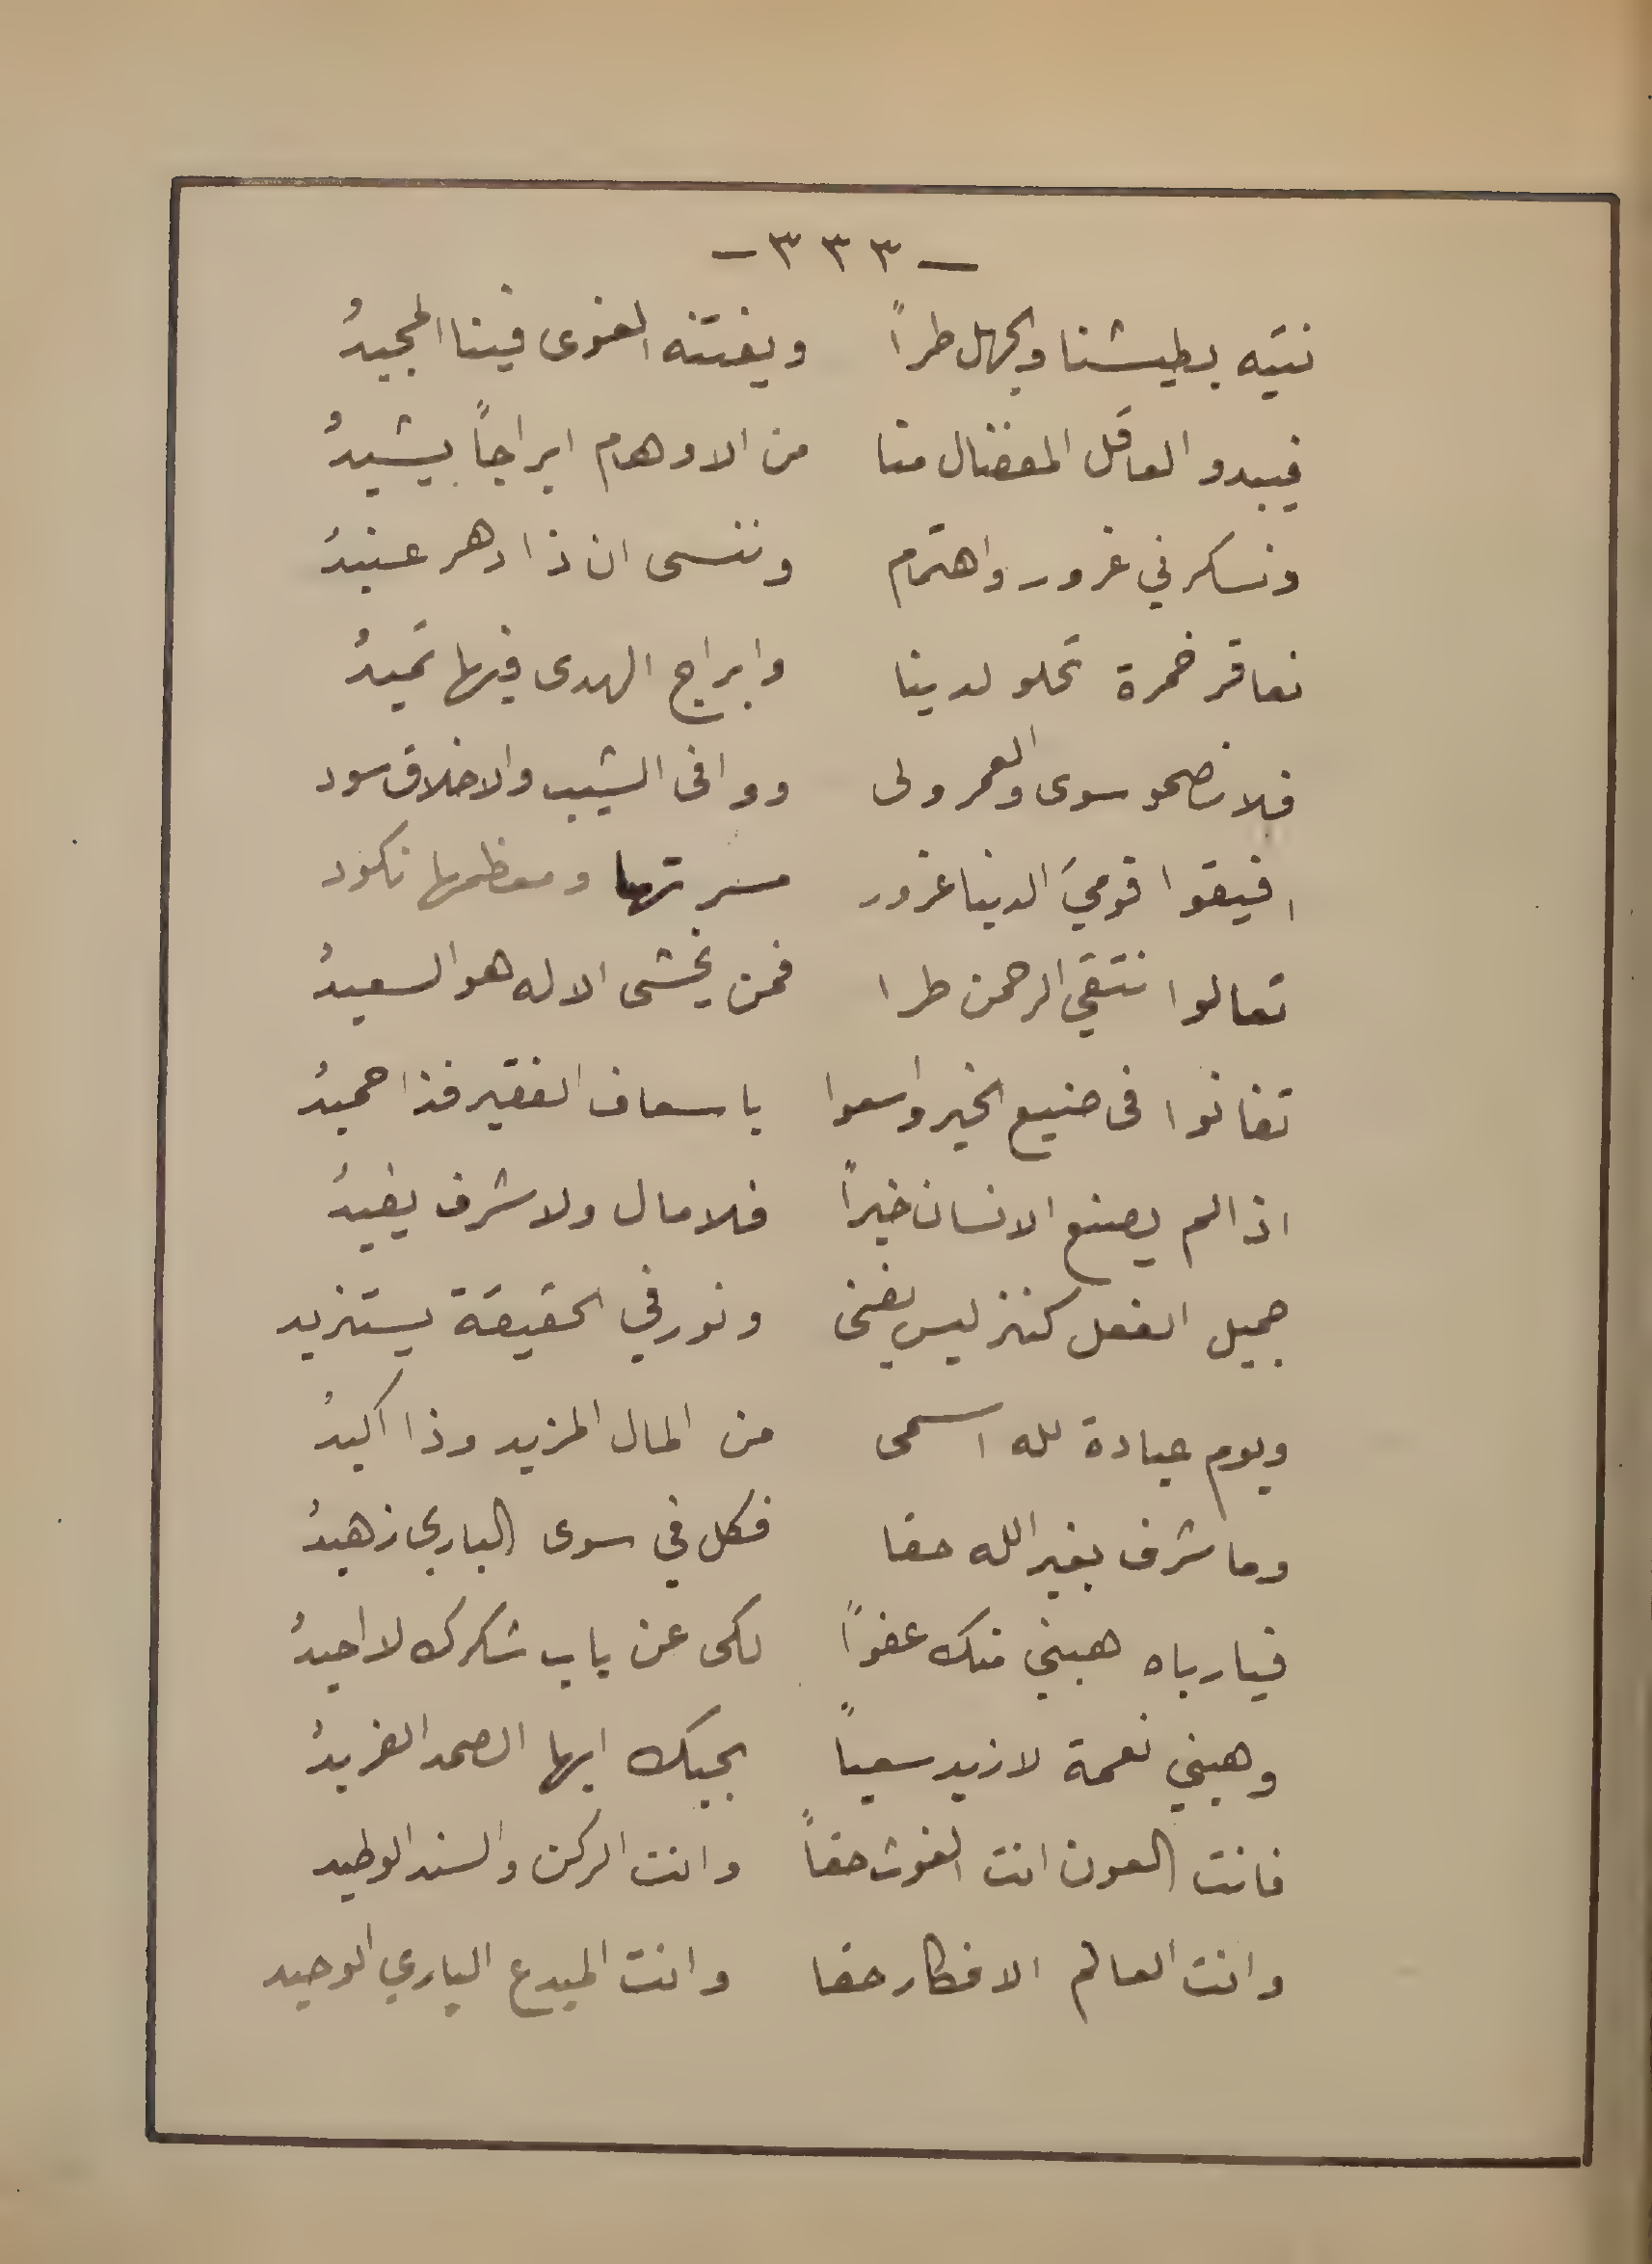 — ٣٣٣ —
نتيه بطيشنا والجهل طراً ويفتنه الغوى فينا المجيدُ
فيبدو العاقل المفضال منا من الاوهام ابراجاً يشيدُ
ونسكر في غرور واهتمام وننسى ان ذا دهر عنيدُ
نعاقر خمرة تحلو لدينا وابراج الهدى فيها تميدُ
فلا نصحو سوى والعمر ولى ووافى الشيب والاخلاق سود
افيقوا قوميَ الدنيا غرور مسرتها ومعظمها نكود
تعالوا نتقي الرحمن طرا فمن يخشى الاله هو السعيدُ
تفانوا فى صنيع الخير واسعوا باسعاف الفقير فذا حميدُ
اذا لم يصنع الانسان خيراً فلا مال ولا شرف يفيدُ
جميل الفعل كنز ليس يفنى ونور في الحقيقة يستزيد
ويوم عبادة لله اسمى من المال المزيد وذا اكيدُ
وما شرف بغير الله حقا فكل في سوى الباري زهيدُ
فيا رباه هبني منك عفواً لكى عن باب شكرك لا احيدُ
وهبني نعمة لازيد سعياً بحبك ايها الصمد الفريدُ
فانت العون انت الغوث حقاً وانت الركن والسند الوطيد
وانت العالم الافكار حقا وانت المبدع الباري الوحيد